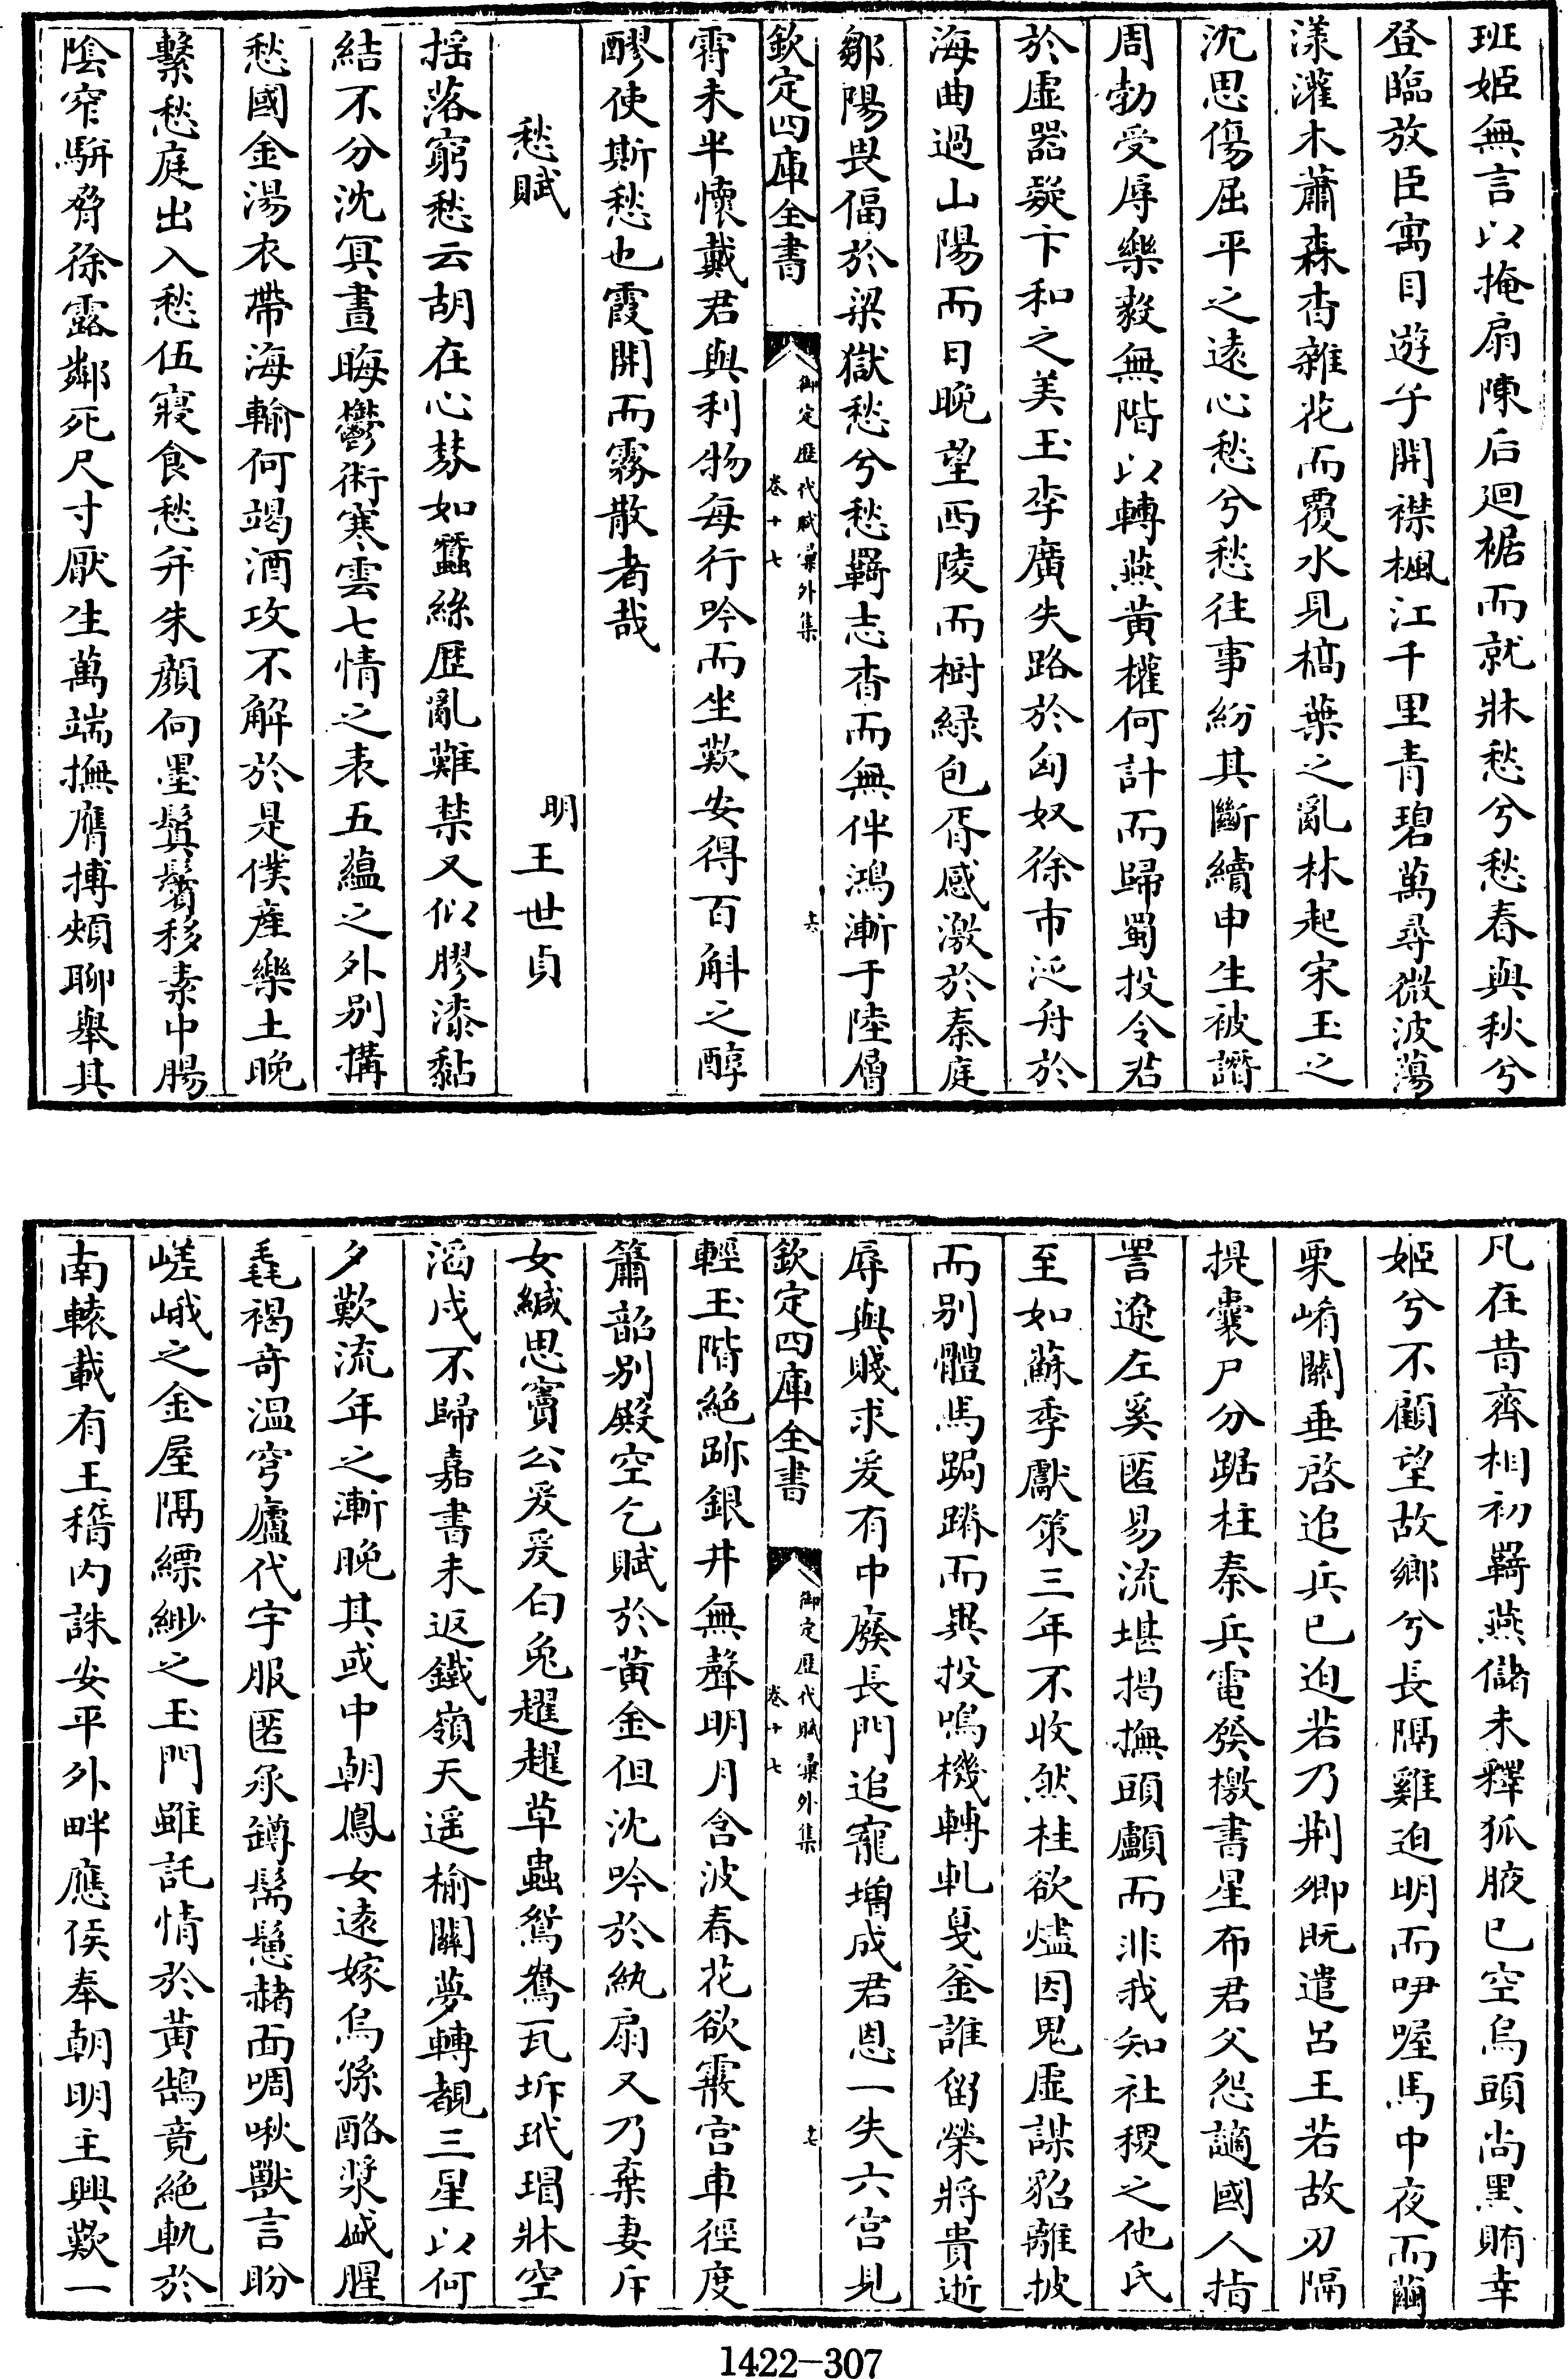 班姬無言以掩扇陳后廻裾而就牀愁兮愁春與秋兮
登臨放臣寓目遊乎開襟楓江千里青碧萬尋微波蕩
漾灌木蕭森杳雜花而覆水見槁葉之亂林起宋玉之
沈思傷屈平之遠心愁兮愁往事紛其斷續申生被譖
周勃受辱樂毅無階以轉燕黃權何計而歸蜀投令君
於虛器疑卞和之美玉李廣失路於匈奴徐市泛舟於
海曲過山陽而日晚望西陵而樹綠包胥感激於秦庭
鄒陽畏偪於梁獄愁兮愁羇志杳而無伴鴻漸于陸層
欽定四庫全書
御定歷代賦彙外集
卷十七
六
霄未半懷戴君與利物每行吟而坐歎安得百斛之醇
醪使斯愁也霞開而霧散者哉
愁賦
明王世貞
揺落窮愁云胡在心棼如蠶絲歷亂難禁又似膠漆黏
結不分沈冥晝晦鬱術寒雲七情之表五蘊之外别搆
愁國金湯衣帶海輸何竭酒攻不解於是僕產樂土晚
繫愁庭出入愁伍寢食愁并朱顔向墨鬒鬢移素中腸
陰窄駢脅徐露鄰死尺寸厭生萬端撫膺搏頰聊舉其
凡在昔齊相初羇燕儲未釋狐腋已空烏頭尚黑賄幸
姬兮不顧望故鄉兮長隔雞迫明而吚喔馬中夜而闖
栗崤關垂啓追兵已迫若乃荆卿既遣呂王若故刃隔
提囊尸分踞柱秦兵電發檄書星布君父怨讁國人指
詈遼左奚匿易流堪揭撫頭顱而非我知社稷之他氏
至如蘇季獻策三年不收然桂欲燼因鬼虛謀貂離披
而别體馬跼蹐而異投鳴機轉軋戛釜誰留榮將貴逝
辱與賤求爰有中廢長門追寵增成君恩一失六宫見
欽定四庫全書
御定歷代賦彙外集
卷十七
十七
輕玉階絶跡銀井無聲明月含波春花欲霰宫車徑度
簫韶别殿空乞賦於黃金但沈吟於紈扇又乃棄妻斥
女緘思竇公爰爰白兔趯趯草蟲鴛鴦瓦坼玳瑁牀空
滔戍不歸嘉書未返鐵嶺天遥榆關夢轉覩三星以何
夕歎流年之漸晚其或中朝鳳女遠嫁烏孫酪漿鹹腥
毳褐奇温穹廬代宇服匿承罇鬅鬆赭面啁啾獸言盼
嵯峨之金屋隔縹緲之玉門雖託情於黄鵠竟絶軌於
南轅載有王稽内誅安平外畔應侯奉朝明主興歎一
1422-307